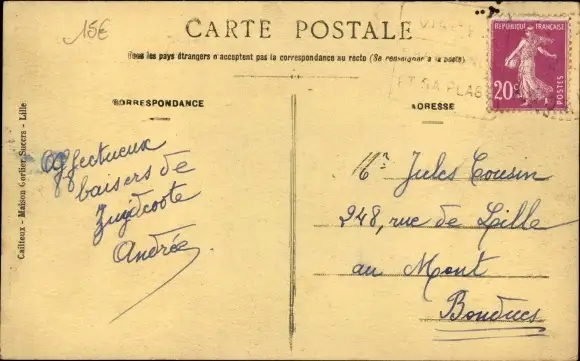 15€
CARTE POSTALE
Tous les pays étrangers n'acceptent pas la correspondance au recto (Se renseigner à la poste)
CORRESPONDANCE
ADRESSE
REPUBLIQUE FRANÇAISE
20c
POSTES
ET SA PLAG
Cailteux - Maison Cortier Succrs - Lille
Affectueux
baisers de
Zuydcoote
Andrée
Mr Jules Cousin
248, rue de Lille
au Mont
Bondues